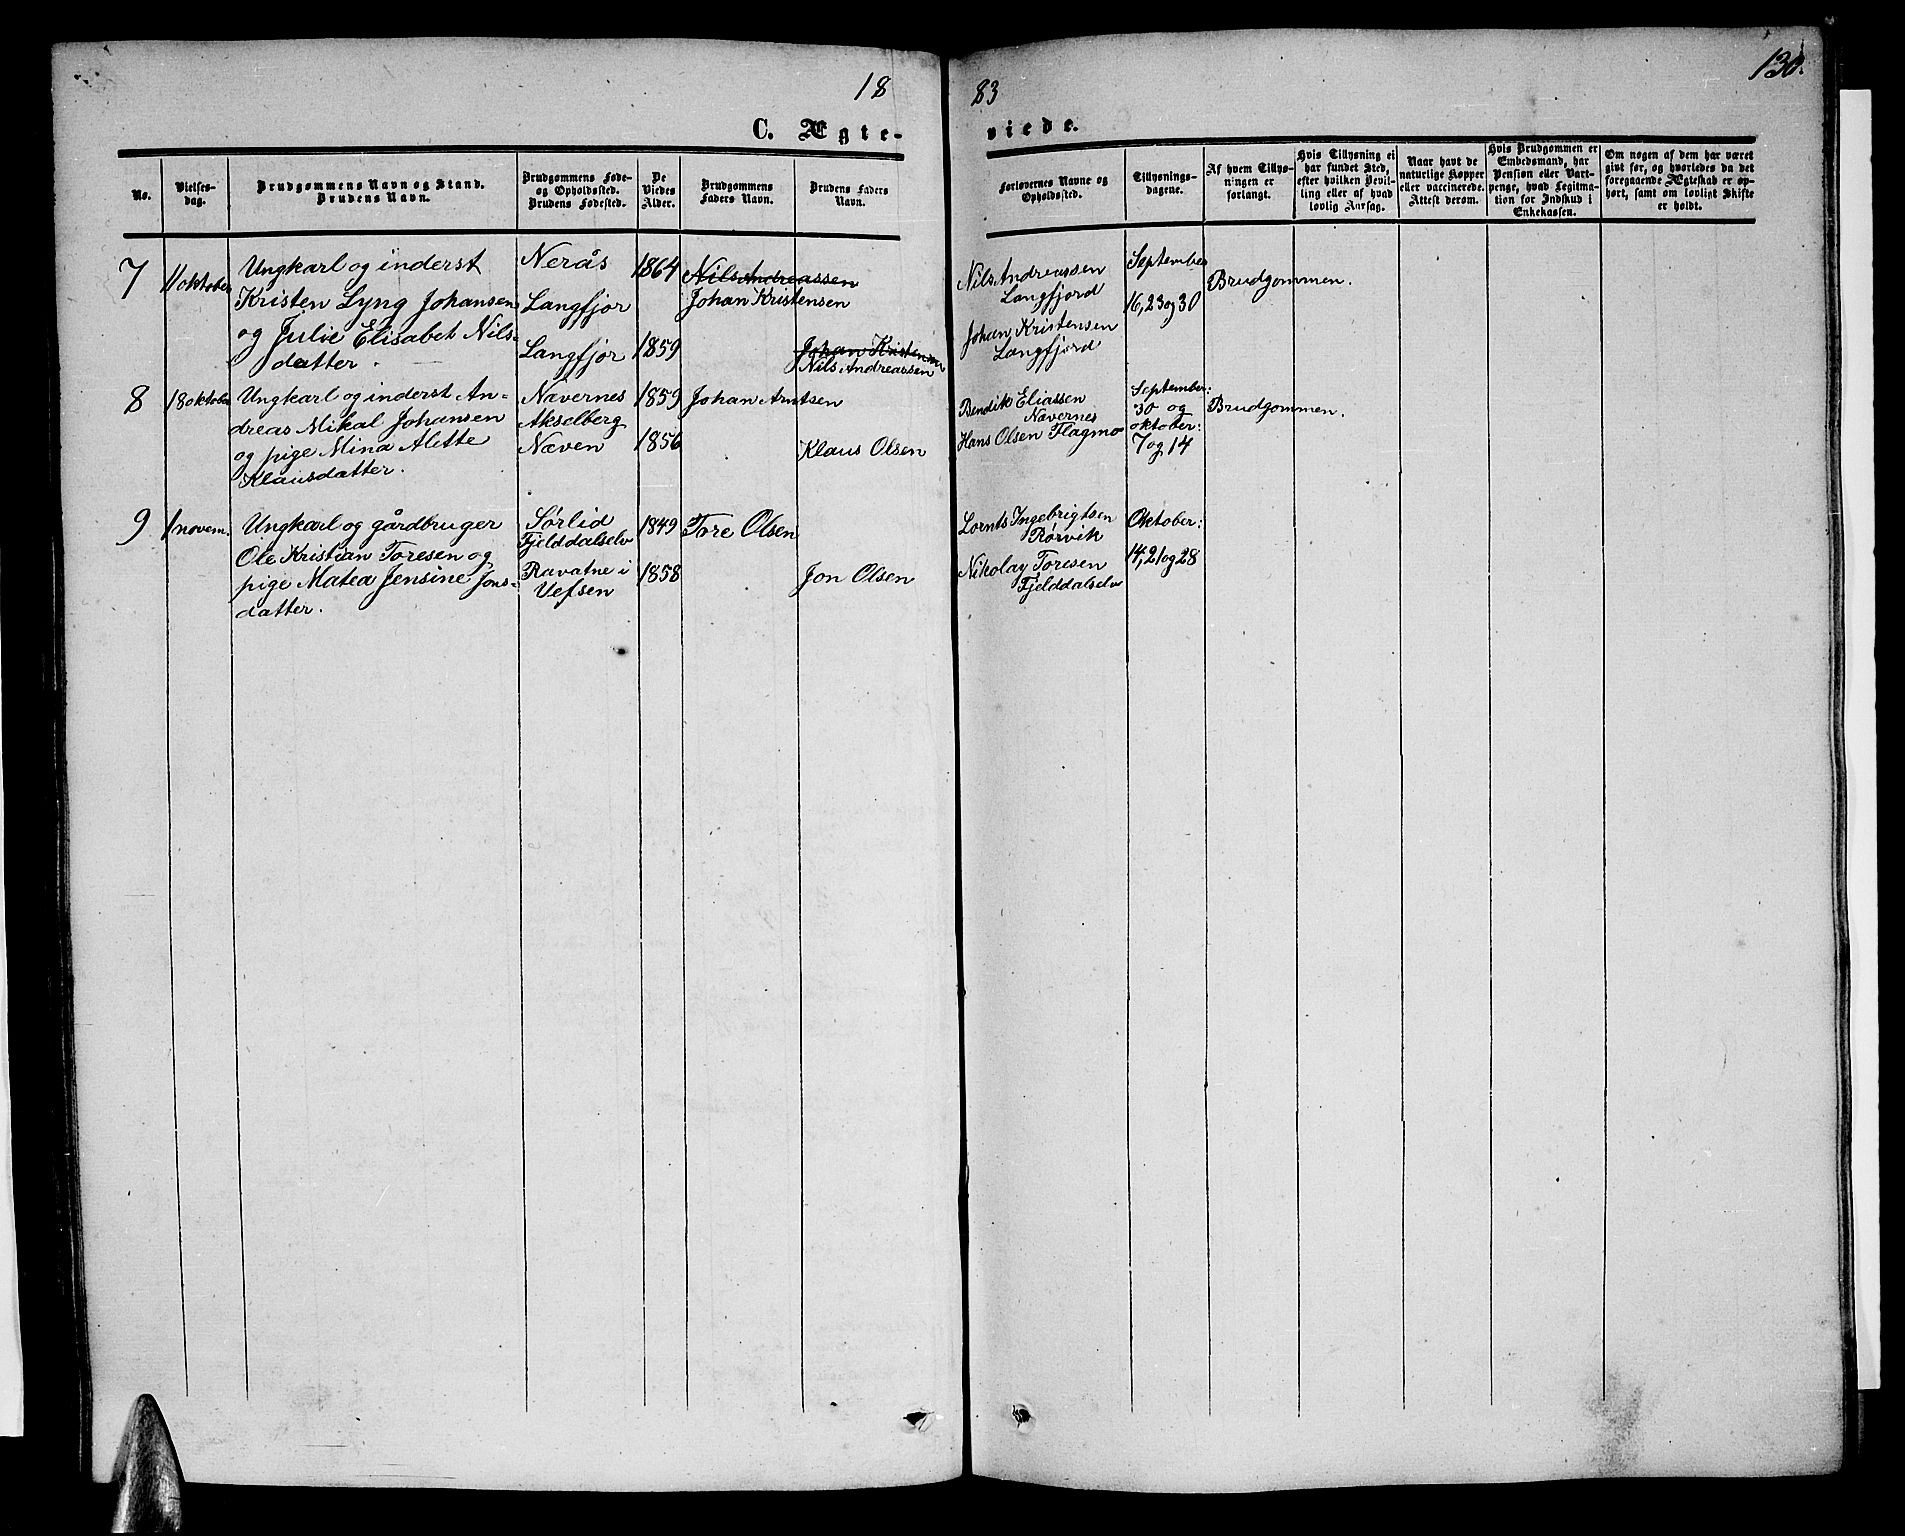 18 83 130.
C. Ægte- viede.
No.
Vielses-
dag.
Brudgommens Navn og Stand.
Brudens Navn.
Brudgommens Føde-
og Opholdssted.
Brudens Fødested.
De
Viedes
Alder.
Brudgommens
Faders Navn.
Brudens Faders
Navn.
Forlovernes Navne og
Opholdssted.
Tillysnings-
dagene.
Af hvem Tillys-
ningen er
forlangt.
Hvis Tillysning ei
har fundet Sted,
efter hvilken Bevil-
ling eller af hvad
lovlig Aarsag.
Naar havt de
naturlige Kopper
eller vaccinerede.
Attest derom.
Hvis Brudgommen er
Embedsmand, har
Pension eller Vart-
penge, hvad Legitma-
tion for Indskud i
Enkekassen.
Om nogen af dem har været
givt før, og hvorledes da det
foregaaende Ægteskab er op-
hørt, samt om lovligt Skifte
er holdt.
7
11 oktober
Ungkarl og inderst
Kristen Lyng Johansen
og Julie Elisabet Nils-
datter.
Nerås
Langfjor
Langfjor
1864
1859
Nils Andreassen
Johan Kristensen
Johan Kristensen
Nils Andreassen
Nils Andreassen
Langfjord
Johan Kristensen
Langfjord
September
16, 23 og 30
Brudgommen.
8
18 oktober
Ungkarl og inderst An-
dreas Mikal Johansen
og pige Mina Alette
Klausdatter.
Nævernes
Akselberg
Næven
1859
1856
Johan Arntsen
Klaus Olsen
Bendik Eliassen
Nævernes
Hans Olsen Flagmo
September:
30 og
oktober:
7 og 14
Brudgommen.
9
1 novem.
Ungkarl og gårdbruger
Ole Kristian Toresen og
pige Matea Jensine Jons-
datter.
Sørlid
Fjelddalselv
Ravatne i
Vefsen
1849
1858
Tore Olsen
Jon Olsen
Lornts Ingebrigtsen
Rørvik
Nikolay Toresen
Fjelddalselv
Oktober:
14, 21 og 28